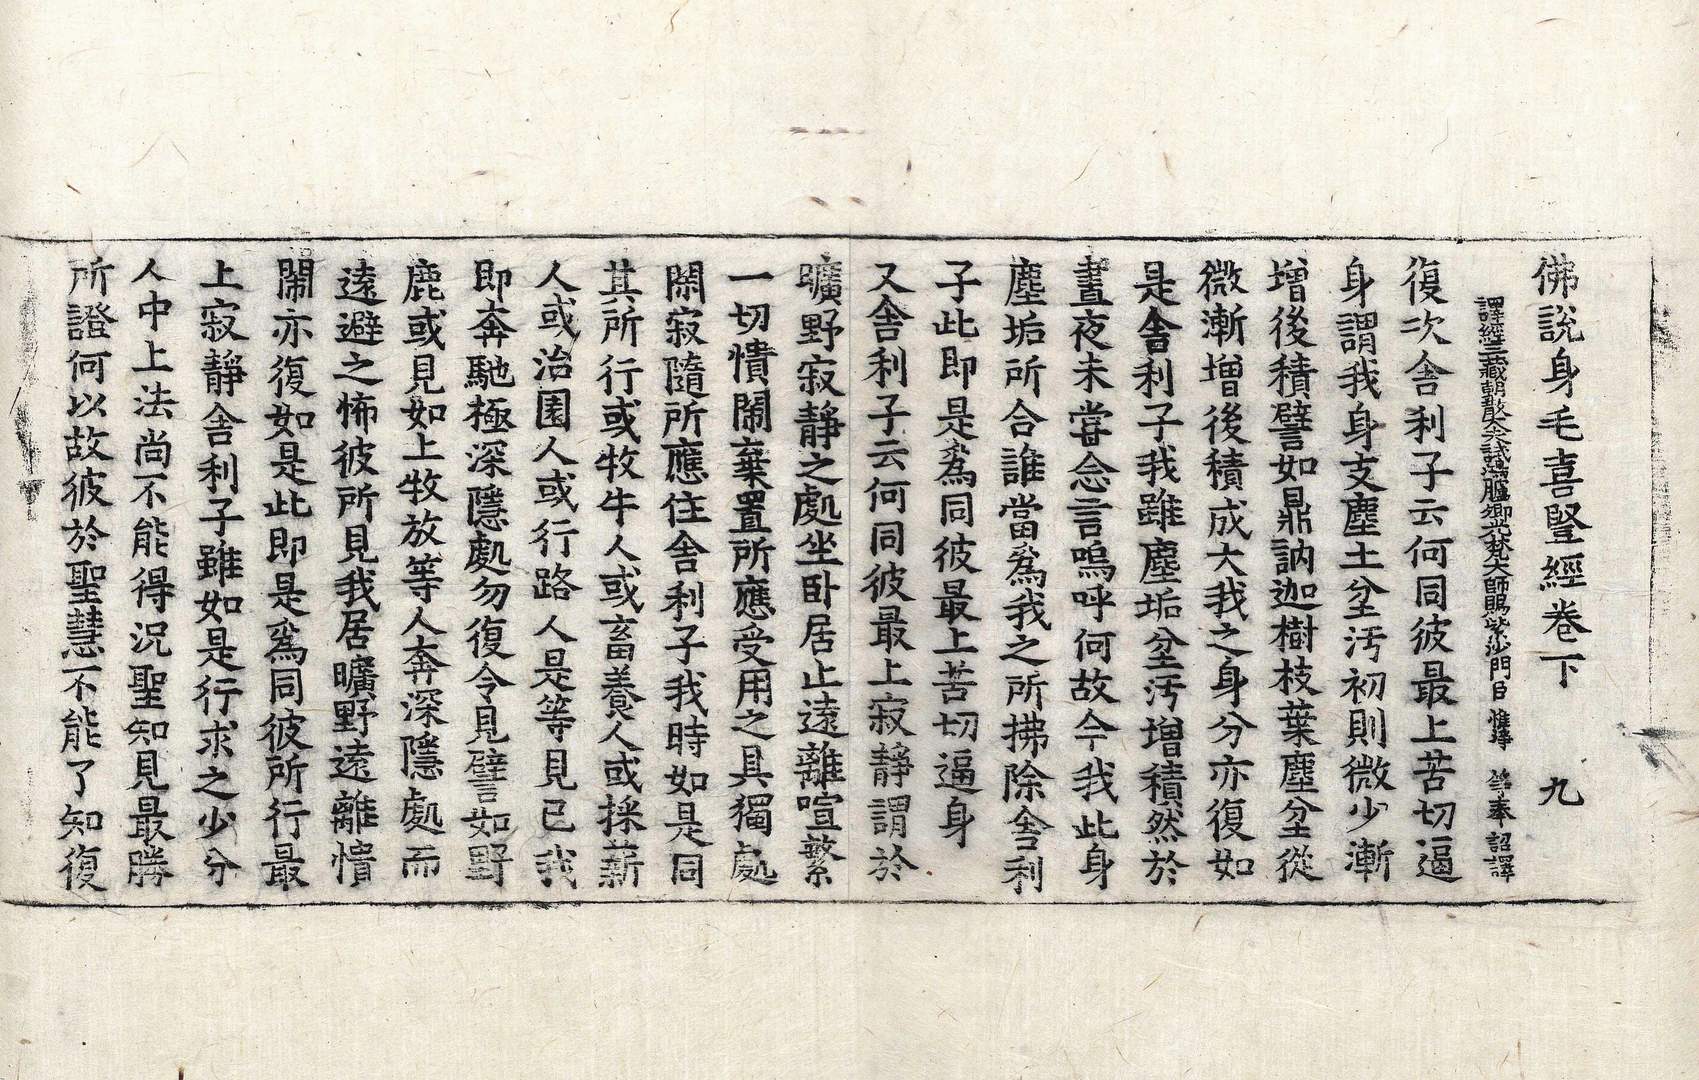 佛說身毛喜豎經卷下 九
譯經三藏朝散大夫試鴻臚卿光梵大師賜紫沙門臣 惟淨 等奉 詔譯
復次舍利子云何同彼最上苦切逼
身謂我身支塵土坌汚初則微少漸
增後積譬如鼎訥迦樹枝葉塵坌從
微漸增後積成大我之身分亦復如
是舍利子我雖塵垢坌汚增積然於
晝夜未嘗念言嗚呼何故今我此身
塵垢所合誰當爲我之所拂除舍利
子此即是爲同彼最上苦切逼身
又舍利子云何同彼最上寂靜謂於
曠野寂靜之處坐臥居止遠離喧繁
一切憒閙棄置所應受用之具獨處
閑寂隨所應住舍利子我時如是同
其所行或牧牛人或畜養人或採薪
人或治園人或行路人是等見已我
即奔馳極深隱處勿復令見譬如野
鹿或見如上牧放等人奔深隱處而
遠避之怖彼所見我居曠野遠離憒
閙亦復如是此即是爲同彼所行最
上寂靜舍利子雖如是行求之少分
人中上法尚不能得況聖知見最勝
所證何以故彼於聖慧不能了知復